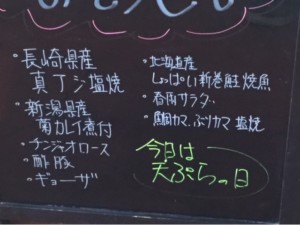 ・長崎県産
真アジ塩焼
・新潟県産
菊カレイ煮付
・チンジャオロース
・酢豚
・ギョーザ
・北海道産
しっぱい新巻鮭焼魚
・春雨サラダ
・鯛カマ、ぶりカマ 塩焼
今日は
天ぷらの日